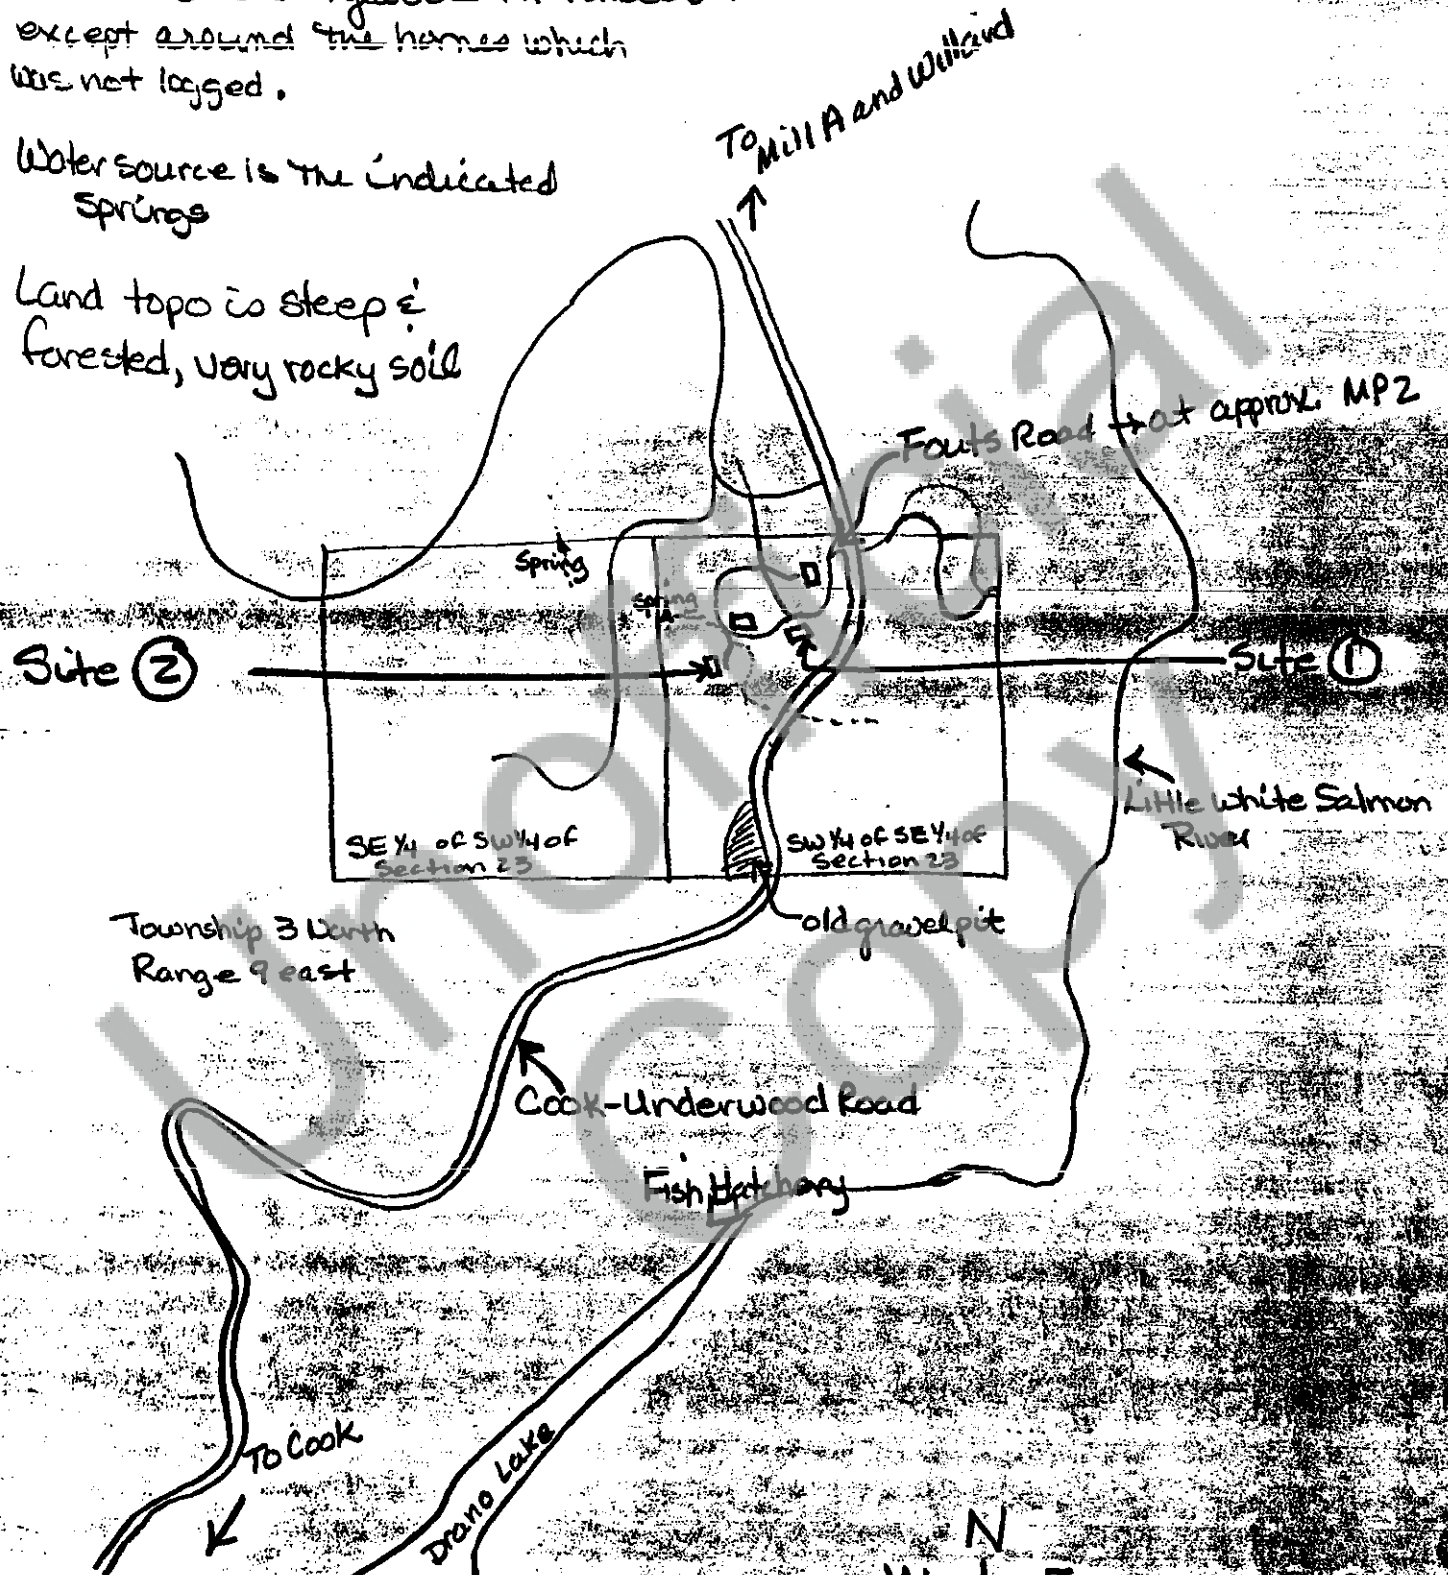 except around the homes which
was not logged.
Water source is the indicated
springs
Land topo is steep &
forested, very rocky soil
To Mill A and Willard
Fouts Road at approx. MP2
Spring
Spring
Site 2
Site 1
Little White Salmon
River
SE 1/4 of SW 1/4 of
Section 23
SW 1/4 of SE 1/4 of
Section 23
old gravel pit
Township 3 North
Range 9 east
Cook-Underwood Road
Fish Hatchery
To Cook
Drano Lake
N
W
E
Unofficial
Copy